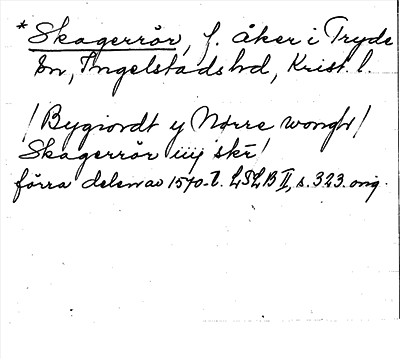 * Skagerrör, f. åker i Tryde
sn, Ingelstads hd, Krist. l.
/ Bygiordt y Nörre wongh /
Skagerrör iiij skr /
förra delen av 1570-t. LSLB II, s. 323. orig.